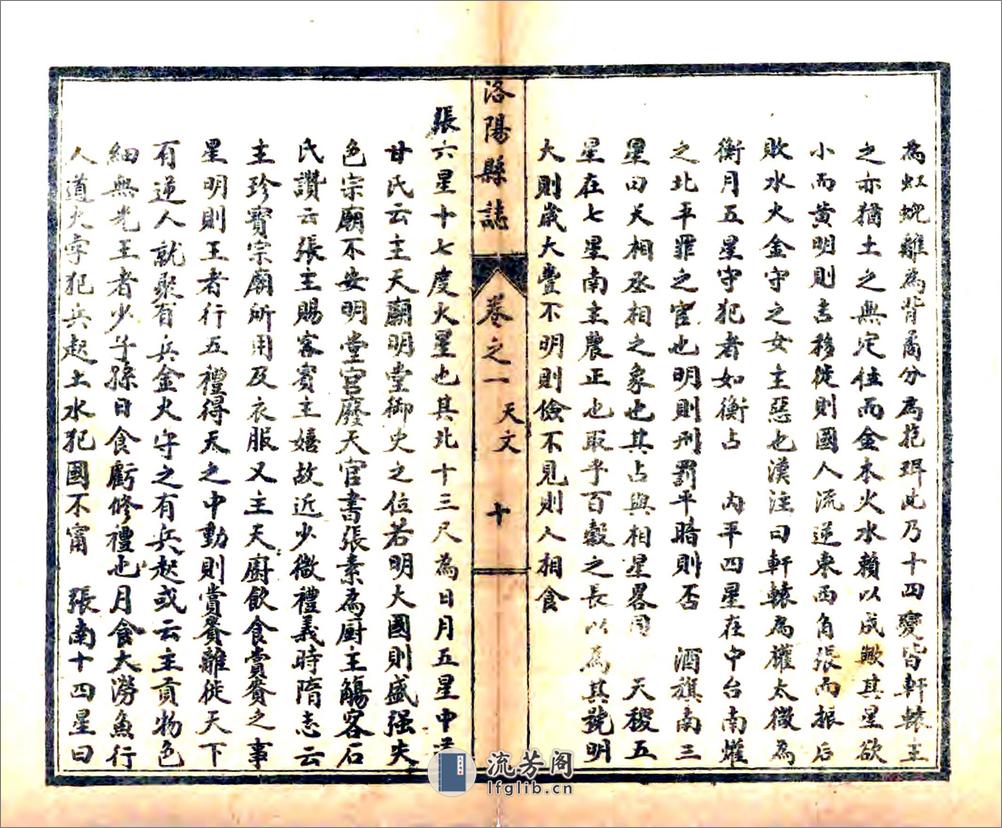 為虹蜺離為背矞分為抱珥此乃十四變皆軒轅主
之亦猶土之無定位而金木火水賴以成歟其星欲
小而黃明則吉移徙則國人流逆東西角張而振后
敗水火金守之女主惡也漢注曰軒轅為權太微為
衡月五星守犯者如衡占　內平四星在中台南爟
之北平罪之官也明則刑罰平暗則否　酒旗南三
星曰天相丞相之象也其占與相星畧同　天稷五
星在七星南主農正也取乎百穀之長以為其號明
大則歲大豐不明則儉不見則人相食
洛陽縣誌　卷之一　天文　十
張六星十七度火星也其北十三尺為日月五星中
甘氏云主天廟明堂御史之位若明大國則盛强失
色宗廟不安明堂宮廢天官書張素為廚主觴客石
氏讚云張主賜客賓主嬉故近少微禮義時隋志云
主珍寶宗廟所用及衣服又主天廚飲食賞賚之事
星明則王者行五禮得天之中動則賞賚離徙天下
有逆人就聚有兵金火守之有兵起或云主貢物色
細無光王者少子孫日食虧修禮也月食大澇魚行
人道火孛犯兵起土水犯國不甯　張南十四星曰
流芳阁
lfglib.cn